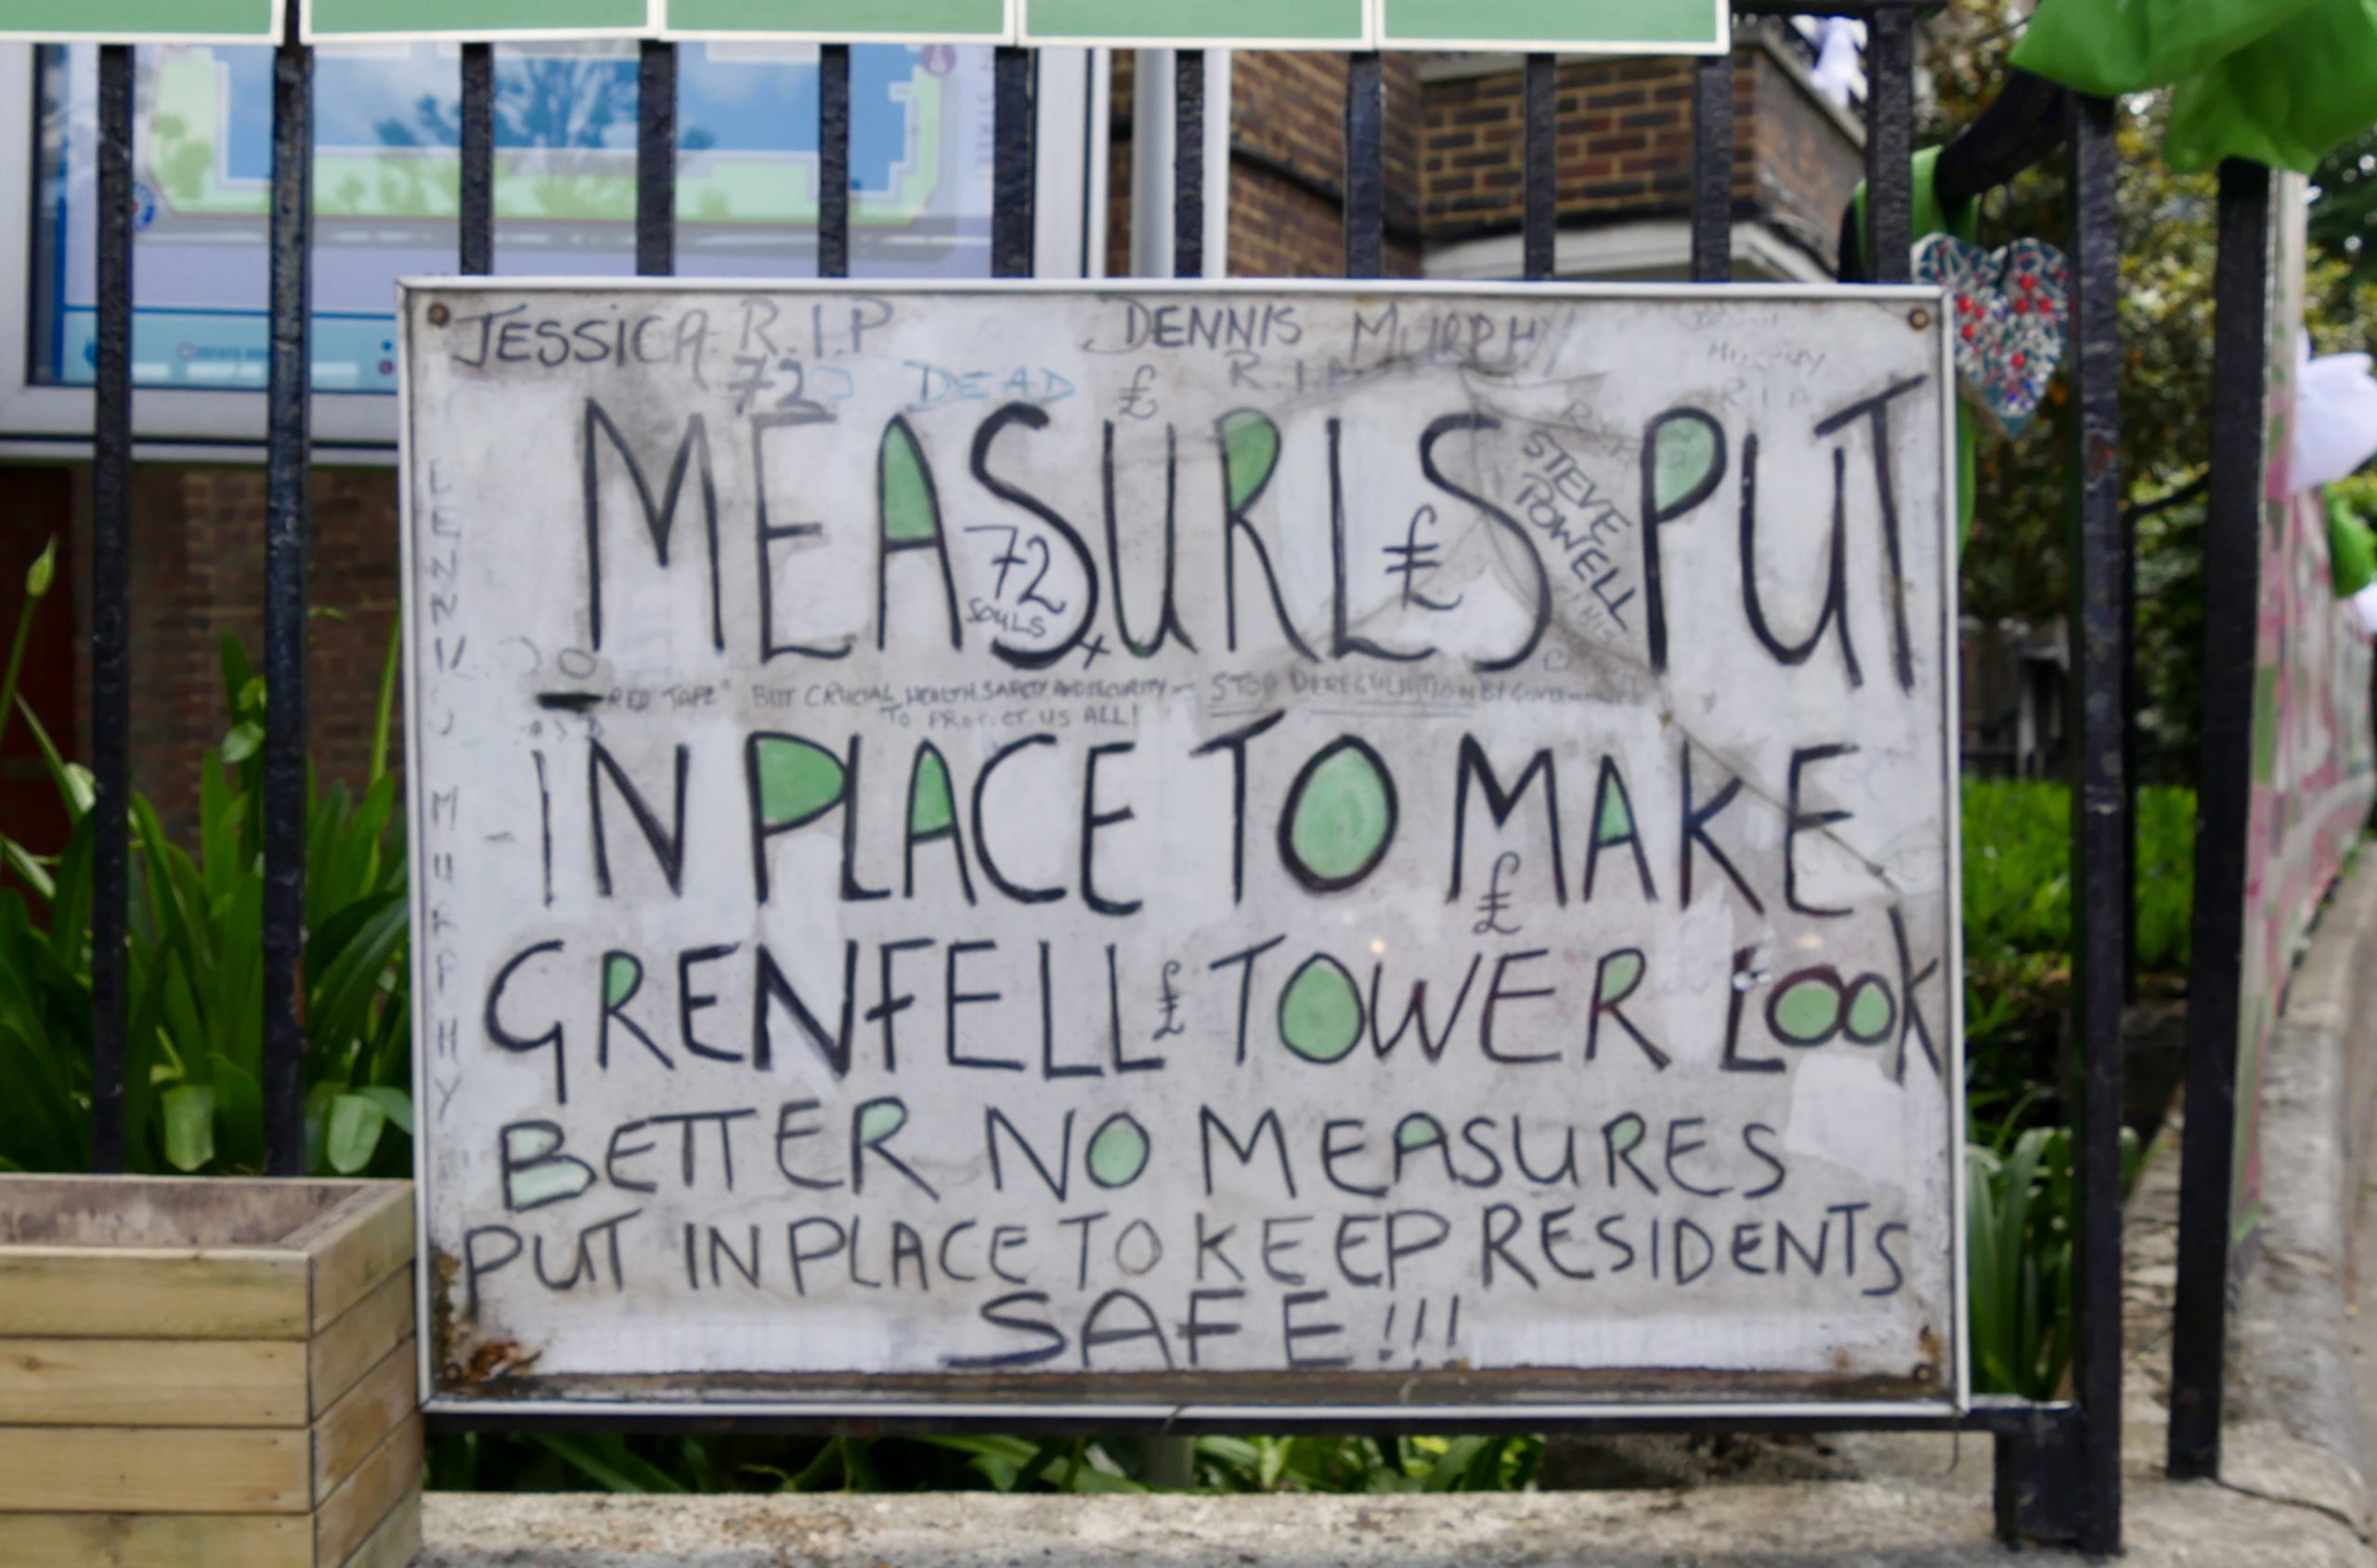 JESSICA R.I.P DENNIS MURPHY
72 DEAD £ R.I.P
MURPHY
R I P
MEASURES PUT
72
SOULS
£
STEVE
POWELL
"RED TAPE" BUT CRUCIAL HEALTH SAFETY AND SECURITY - STOP DEREGULATION BY GOVERNMENT
TO PROTECT US ALL!
IN PLACE TO MAKE
£
GRENFELL £ TOWER LOOK
BETTER NO MEASURES
PUT IN PLACE TO KEEP RESIDENTS
SAFE!!!
MURPHY